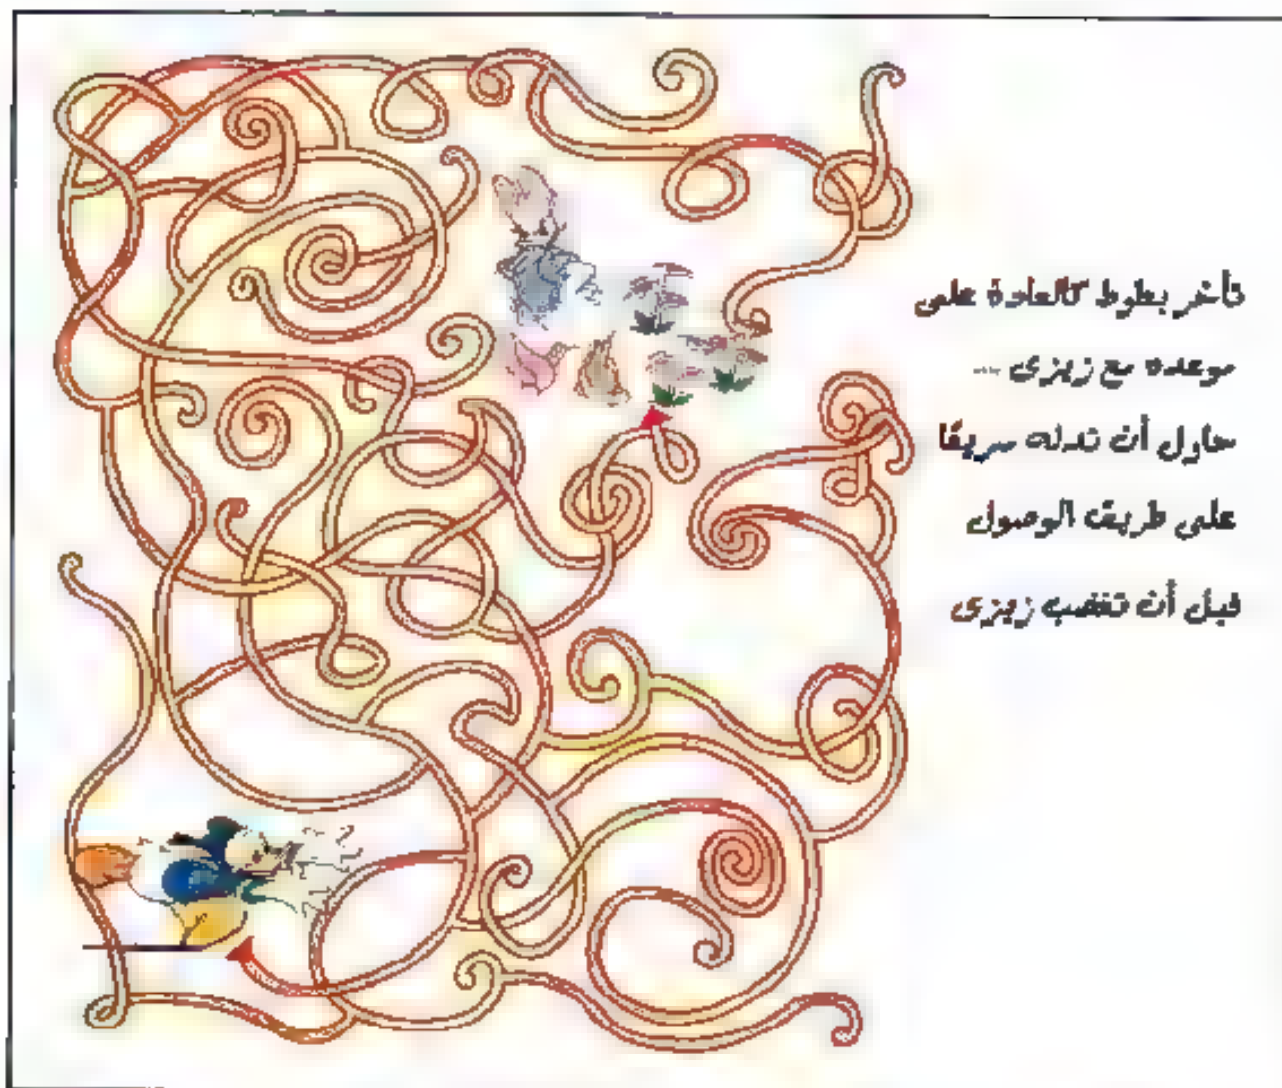 تأخر بطوط كالعادة على
موعده مع زيزى ...
حاول أن تدله سريعًا
على طريق الوصول
قبل أن تغضب زيزى